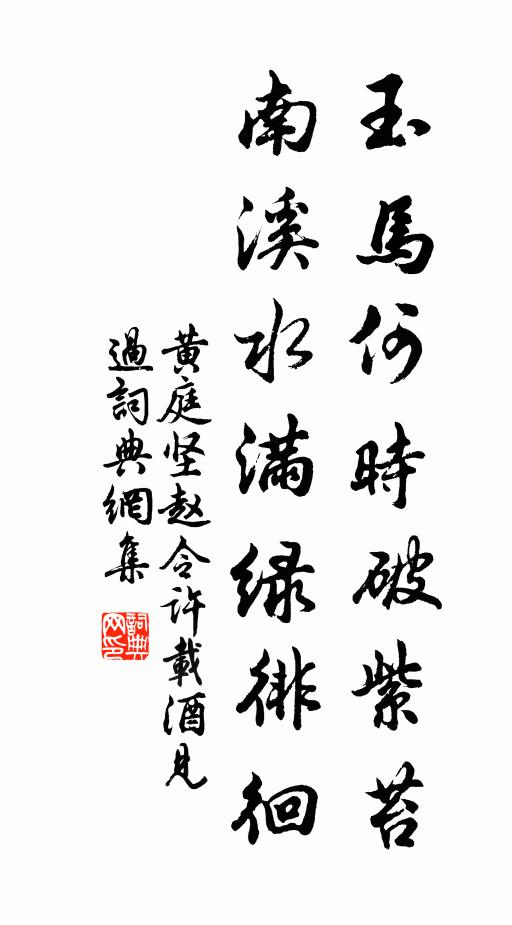 玉馬何時破紫苔
南溪水滿綠徘徊
黃庭坚赵令許載酒見
過詞典網集
詞典
网印